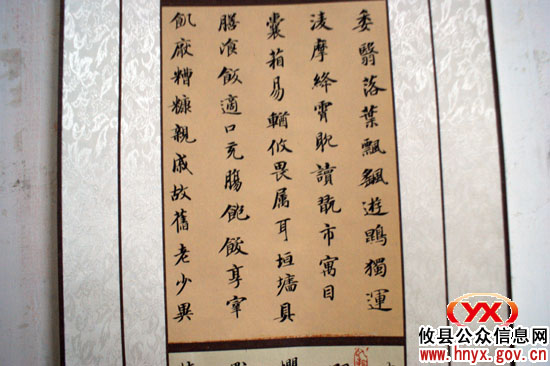 委翳落葉飄颻遊鵾獨運
淩摩絳霄耽讀翫市寓目
囊箱易輶攸畏属耳垣墻具
膳飡飯適口充腸飽飫享宰
飢厭糟糠親戚故舊老少異
YX
攸县公众信息网
www.hnyx.gov.cn